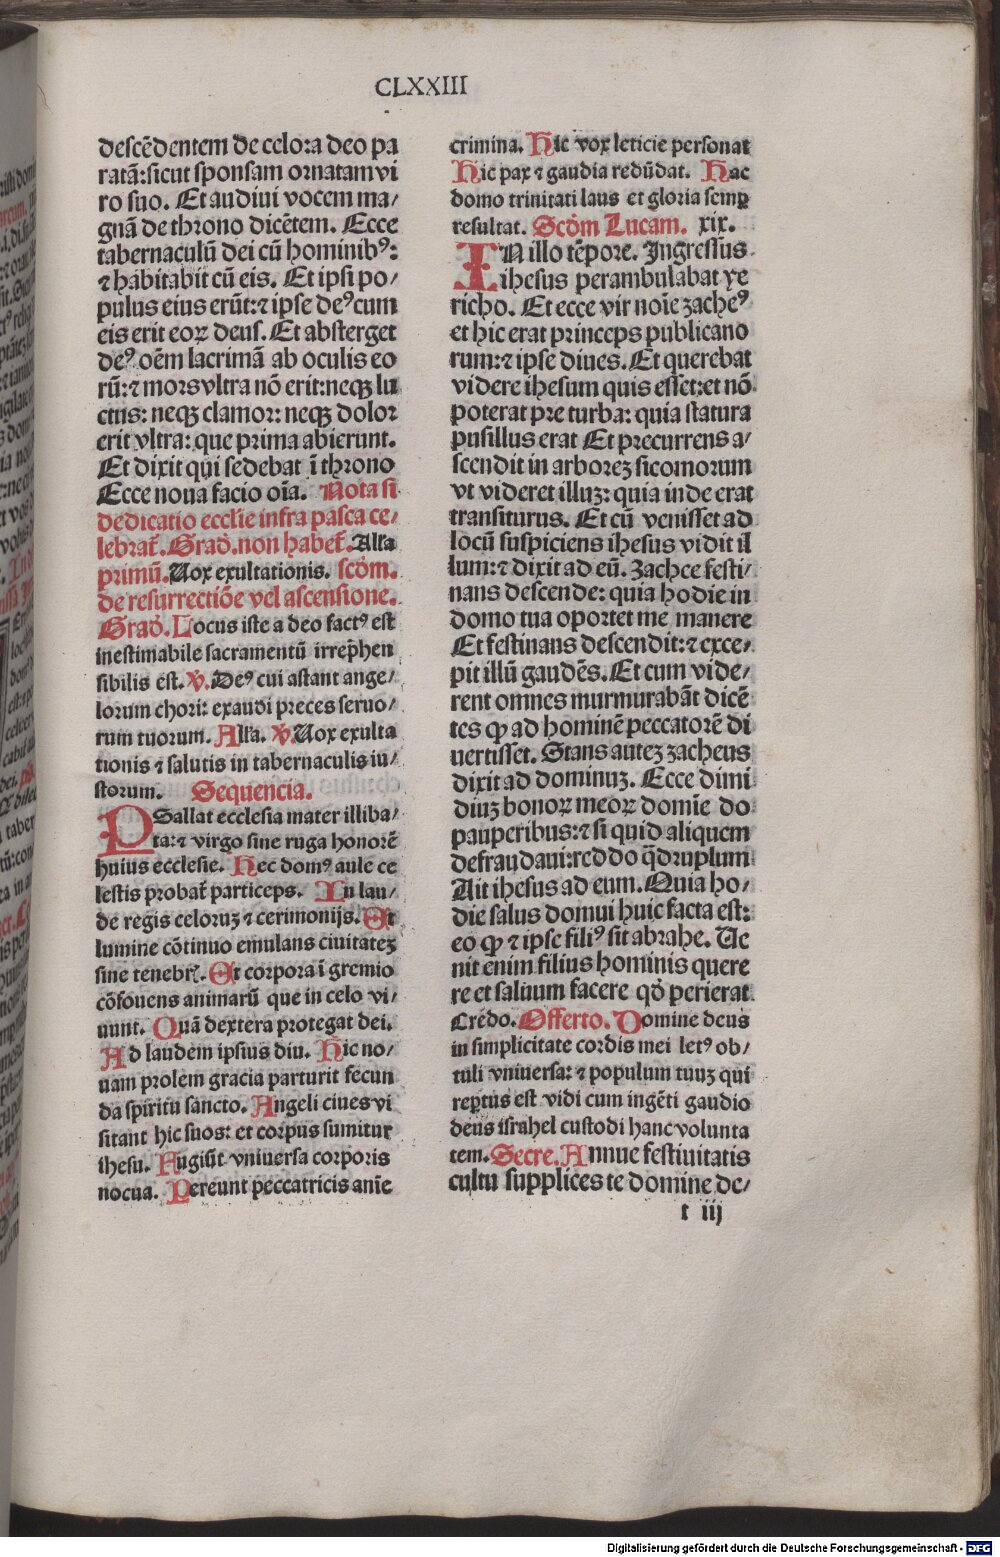 CLXXIII
descēdentem de celo:a deo pa
ratā:sicut sponsam ornatam vi
ro suo. Et audiui vocem ma/
gnā de throno dicētem. Ecce
tabernaculū dei cū hominibꝰ:
⁊ habitabit cū eis. Et ipsi po/
pulus eius erūt:⁊ ipse deꝰ cum
eis erit eoꝝ deus. Et absterget
deꝰ oēm lacrimā ab oculis eo
rū:⁊ mors vltra nō erit:neqꝫ lu
ctus: neqꝫ clamor: neqꝫ dolor
erit vltra: que prima abierunt.
Et dixit qui sedebat ī throno
Ecce noua facio oīa. Nota si
dedicatio ecclīe infra pasca ce/
lebrat̄. Grad̄. non habet̄. Alla
primū. Uox exultationis. scd̄m.
de resurrectiōe vel ascensione.
Grad̄. Locus iste a deo factꝰ est
inestimabile sacramentū irrep̄hen
sibilis est. ℣. Deꝰ cui astant ange/
lorum chori: exaudi preces seruo/
rum tuorum. Alla. ℣. Uox exulta
tionis ⁊ salutis in tabernaculis iu/
storum. Sequencia.
PSallat ecclesia mater illiba/
ta:⁊ virgo sine ruga honorē
huius ecclesie. Hec domꝰ aule ce
lestis probat̄ particeps. In lau/
de regis celoruꝫ ⁊ cerimonijs. Et
lumine cōtinuo emulans ciuitateꝫ
sine tenebr̄. Et corpora ī gremio
cōfouens animarū que in celo vi/
uunt. Quā dextera protegat dei.
Ad laudem ipsius diu. Hic no/
uam prolem gracia parturit fecun
da spiritu sancto. Angeli ciues vi
sitant hic suos: et corpus sumitur
ihesu. Fugiūt vniuersa corporis
nocua. Pereunt peccatricis anīe
crimina. Hic vox leticie personat
Hic pax ⁊ gaudia redūdat. Hac
domo trinitati laus et gloria semꝑ
resultat. Scd̄m Lucam. xix.
IN illo tēpore. Ingressus
ihesus perambulabat ye
richo. Et ecce vir noīe zacheꝰ
et hic erat princeps publicano
rum:⁊ ipse diues. Et querebat
videre ihesum quis esset:et nō
poterat pre turba: quia statura
pusillus erat Et precurrens a/
scendit in arboreꝫ sicomorum
vt videret illuꝫ: quia inde erat
transiturus. Et cū venisset ad
locū suspiciens ihesus vidit il
lum:⁊ dixit ad eū. Zachee festi/
nans descende: quia hodie in
domo tua oportet me manere
Et festinans descendit:⁊ exce/
pit illū gaudēs. Et cum vide/
rent omnes murmurabāt dicē
tes ꝙ ad hominē peccatorē di
uertisset. Stans auteꝫ zacheus
dixit ad dominuꝫ. Ecce dimi
diuꝫ bonoꝝ meoꝝ domīe do
pauperibus:⁊ si quid aliquem
defraudaui:reddo q̄druplum
Ait ihesus ad eum. Quia ho/
die salus domui huic facta est:
eo ꝙ ⁊ ipse filiꝰ sit abrahe. Ue
nit enim filius hominis quere
re et saluum facere qd̄ perierat.
Credo. Offerto. Domine deus
in simplicitate cordis mei letꝰ ob/
tuli vniuersa: ⁊ populum tuuꝫ qui
rep̄tus est vidi cum ingēti gaudio
deus israhel custodi hanc volunta
tem. Secre. Annue festiuitatis
cultu supplices te domine de/
t iij
Digitalisierung gefördert durch die Deutsche Forschungsgemeinschaft - DFG